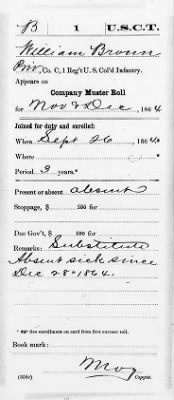 B | 1 | U.S.C.T.
William Brown
Priv, Co. C, 1 Reg't U. S. Col'd Infantry.
Appears on
Company Muster Roll
for Nov & Dec, 1864
Joined for duty and enrolled:
When Sept 26, 1864*
Where
Period 3 years.*
Present or absent absent
Stoppage, $ 100 for
Due Gov't, $ 100 for
Remarks: Substitute
Absent sick since
Dec 28" 1864.
* See enrollment on card from first muster roll.
Book mark:
(358c) Copyist.